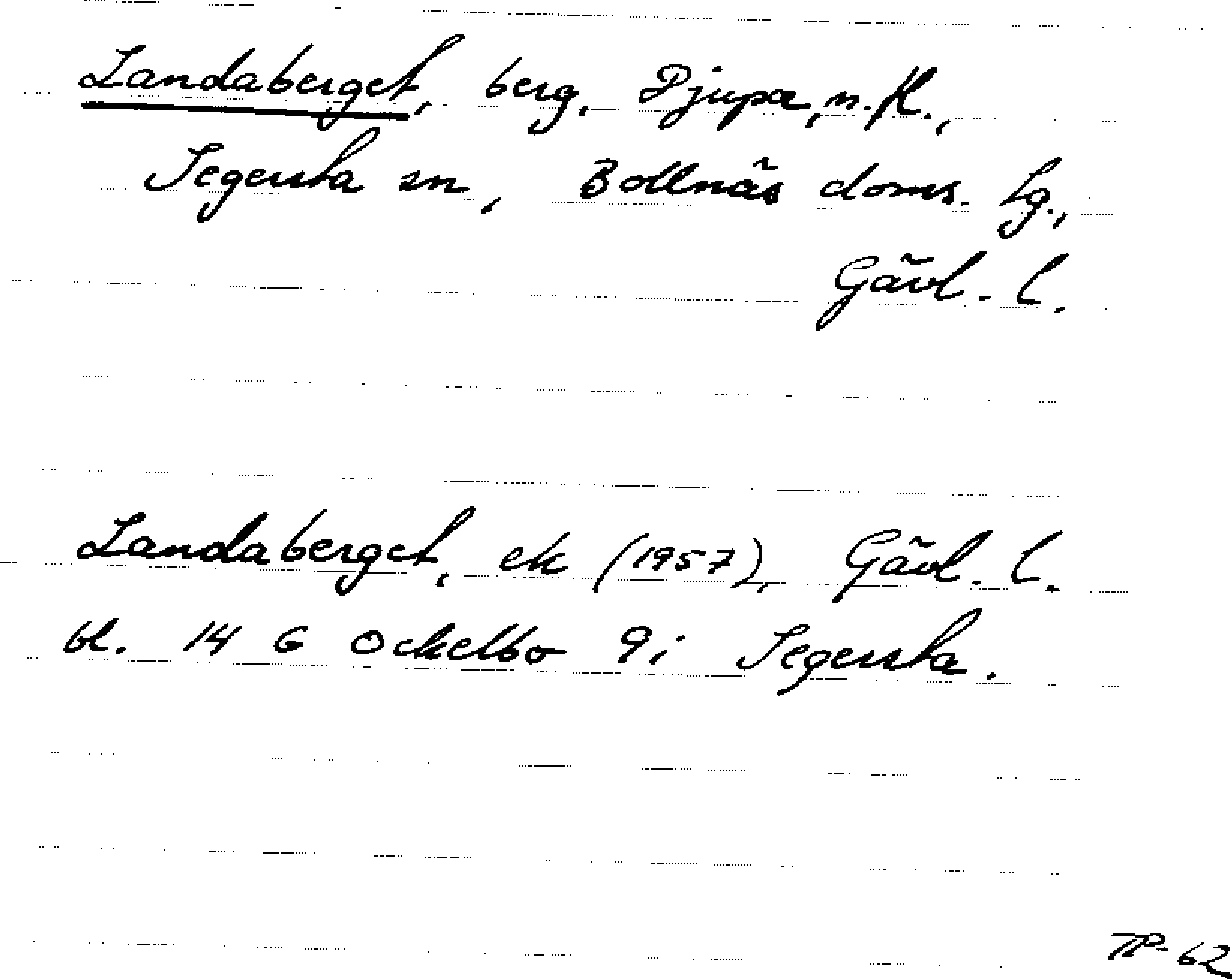 Landaberget, berg, Djupa, n. K.,
Segersta sn, Bollnäs doms. lg.,
Gävl. l.
Landaberget, ek (1957), Gävl. l.
bl. 14 G Ockelbo 9i Segersta.
TP-62